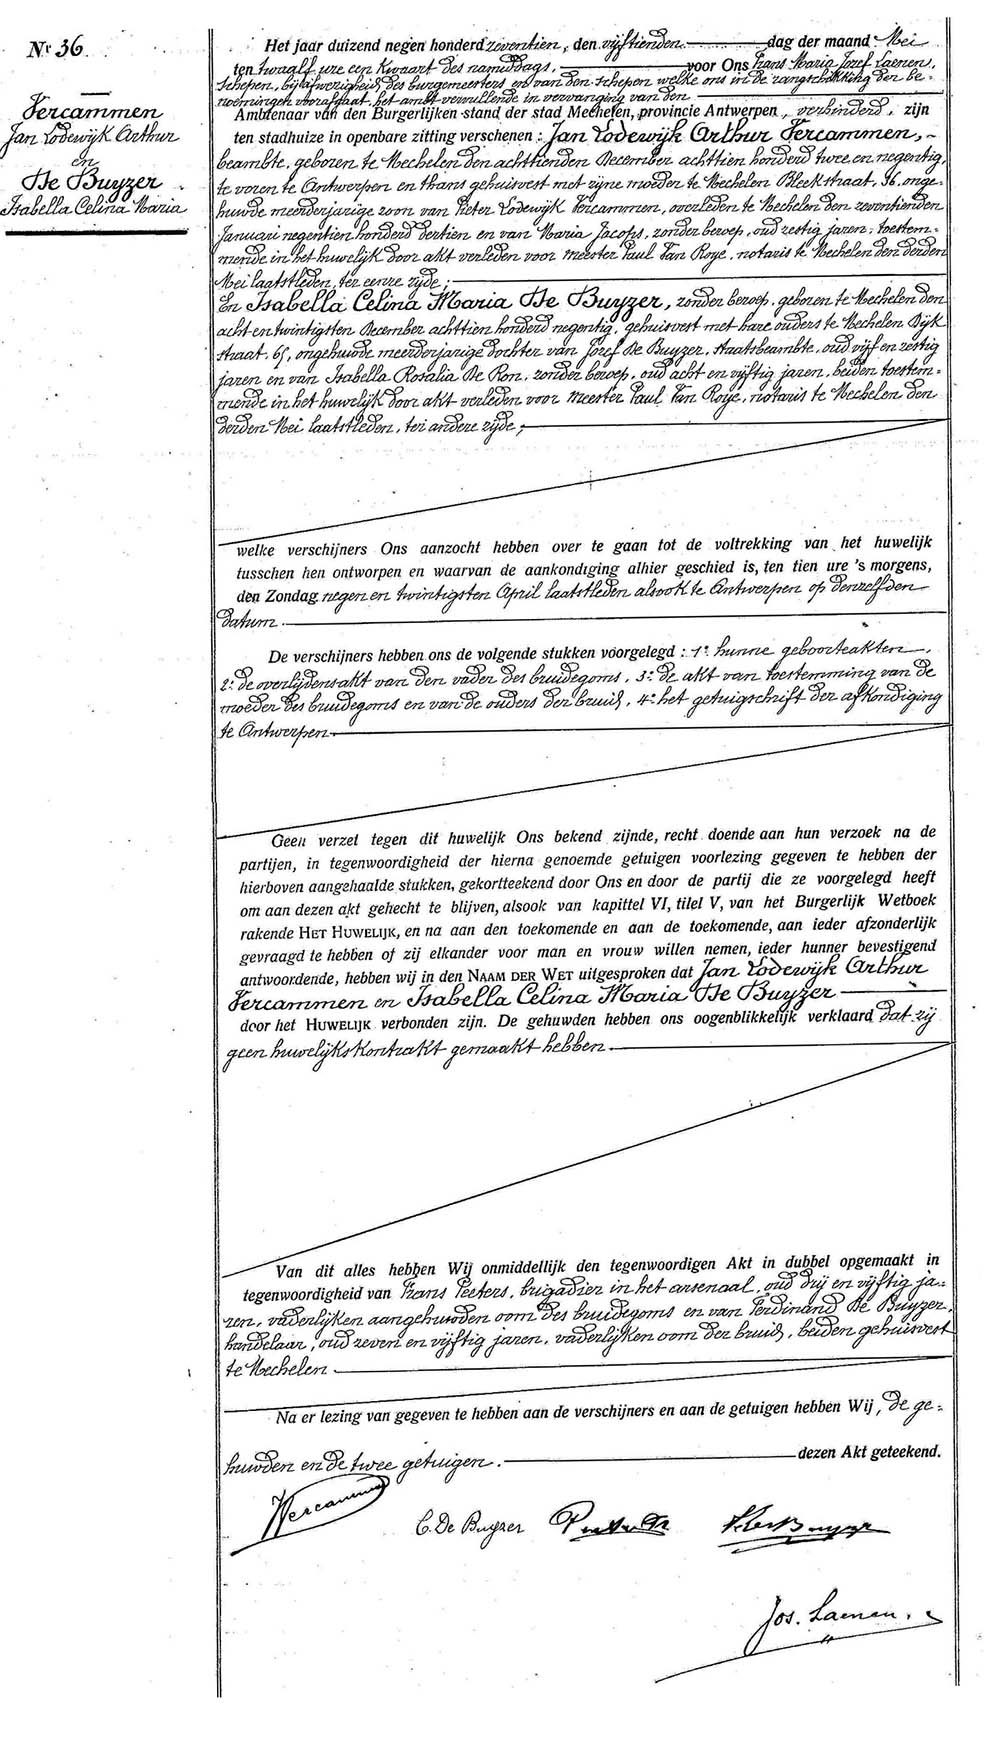 Nr 36.
Vercammen
Jan Lodewijk Arthur
en
De Buyzer
Isabella Celina Maria
Het jaar duizend negen honderd zeventien, den vijftienden dag der maand Mei
ten twaalf ure een kwaart des namiddags, voor Ons Frans Maria Jozef Laenen,
Schepen, bij afwezigheid des burgemeesters en van den schepen welke ons in de rangschikking der be-
noemingen voorafgaat het ambt vervullende in vervanging van den
Ambtenaar van den Burgerlijken stand der stad Mechelen, provincie Antwerpen, verhinderd, zijn
ten stadhuize in openbare zitting verschenen : Jan Lodewijk Arthur Vercammen,
beambte, geboren te Mechelen den achttienden December achttien honderd twee en negentig,
te voren te Antwerpen en thans gehuisvest met zijne moeder te Mechelen Bleekstraat, 36, onge-
huwde meerderjarige zoon van Pieter Lodewijk Vercammen, overleden te Mechelen den zeventienden
Januari negentien honderd dertien en van Maria Jacops, zonder beroep, oud zestig jaren, toestem-
mende in het huwelijk door akt verleden voor meester Paul Van Roye, notaris te Mechelen den derden
Mei laatstleden, ter eenre zijde ;
En Isabella Celina Maria De Buyzer, zonder beroep, geboren te Mechelen den
acht en twintigsten December achttien honderd negentig, gehuisvest met hare ouders te Mechelen Dijk
straat, 65, ongehuwde meerderjarige dochter van Jozef De Buyzer, staatsbeambte, oud vijf en zestig
jaren en van Isabella Rosalia De Ron, zonder beroep, oud acht en vijftig jaren, beiden toestem-
mende in het huwelijk door akt verleden voor meester Paul Van Roye, notaris te Mechelen den
derden Mei laatstleden, ter andere zijde ;
welke verschijners Ons aanzocht hebben over te gaan tot de voltrekking van het huwelijk
tusschen hen ontworpen en waarvan de aankondiging alhier geschied is, ten tien ure 's morgens,
den Zondag negen en twintigsten April laatstleden alsook te Antwerpen op denzelfden
datum.
De verschijners hebben ons de volgende stukken voorgelegd : 1° hunne geboorteakten,
2° de overlijdensakt van den vader des bruidegoms, 3° de akt van toestemming van de
moeder des bruidegoms en van de ouders der bruid, 4° het getuigschrift der afkondiging
te Antwerpen
Geen verzet tegen dit huwelijk Ons bekend zijnde, recht doende aan hun verzoek na de
partijen, in tegenwoordigheid der hierna genoemde getuigen voorlezing gegeven te hebben der
hierboven aangehaalde stukken, gekortteekend door Ons en door de partij die ze voorgelegd heeft
om aan dezen akt gehecht te blijven, alsook van kapittel VI, titel V, van het Burgerlijk Wetboek
rakende HET HUWELIJK, en na aan den toekomende en aan de toekomende, aan ieder afzonderlijk
gevraagd te hebben of zij elkander voor man en vrouw willen nemen, ieder hunner bevestigend
antwoordende, hebben wij in den NAAM DER WET uitgesproken dat Jan Lodewijk Arthur
Vercammen en Isabella Celina Maria De Buyzer
door het HUWELIJK verbonden zijn. De gehuwden hebben ons oogenblikkelijk verklaard dat zij
geen huwelijkskontrakt gemaakt hebben
Van dit alles hebben Wij onmiddellijk den tegenwoordigen Akt in dubbel opgemaakt in
tegenwoordigheid van Frans Peeters, brigadier in het arsenaal, oud drij en vijftig ja-
ren, vaderlijken aangehuwden oom des bruidegoms en van Ferdinand De Buyzer,
handelaar, oud zeven en vijftig jaren, vaderlijken oom der bruid, beiden gehuisvest
te Mechelen
Na er lezing van gegeven te hebben aan de verschijners en aan de getuigen hebben Wij, de ge-
huwden en de twee getuigen. dezen Akt geteekend.
Vercammen
C. De Buyzer
Jos. Laenen.